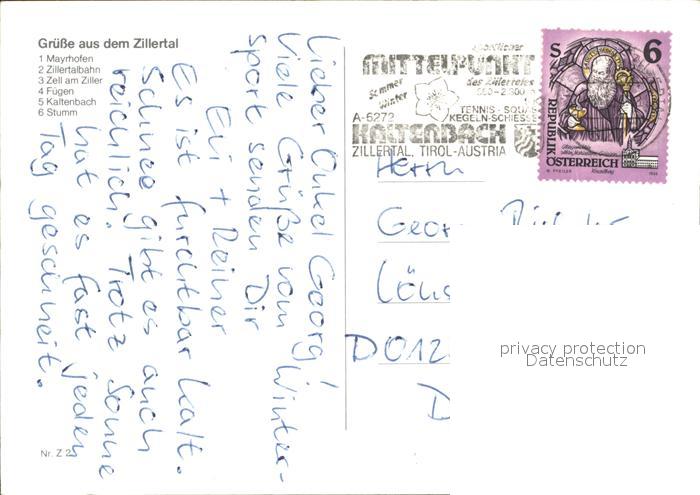 Grüße aus dem Zillertal
1 Mayrhofen
2 Zillertalbahn
3 Zell am Ziller
4 Fügen
5 Kaltenbach
6 Stumm
Lieber Onkel Georg!
Viele Grüße vom Winter-
sport senden Dir
Evi + Reiner
Es ist furchtbar kalt.
Schnee gibt es auch
reichlich. Trotz Sonne
hat es fast jeden
Tag geschneit.
Nr. Z 2
sportlicher
MITTELPUNKT
des Zillertales
Sommer
Winter
560-2300
TENNIS - SQUA
A-6272 KEGELN-SCHIESS
KALTENBACH
ZILLERTAL, TIROL-AUSTRIA
S 6
REPUBLIK
ÖSTERREICH
Herrn
Geor
Löns
D 012
D
privacy protection
Datenschutz